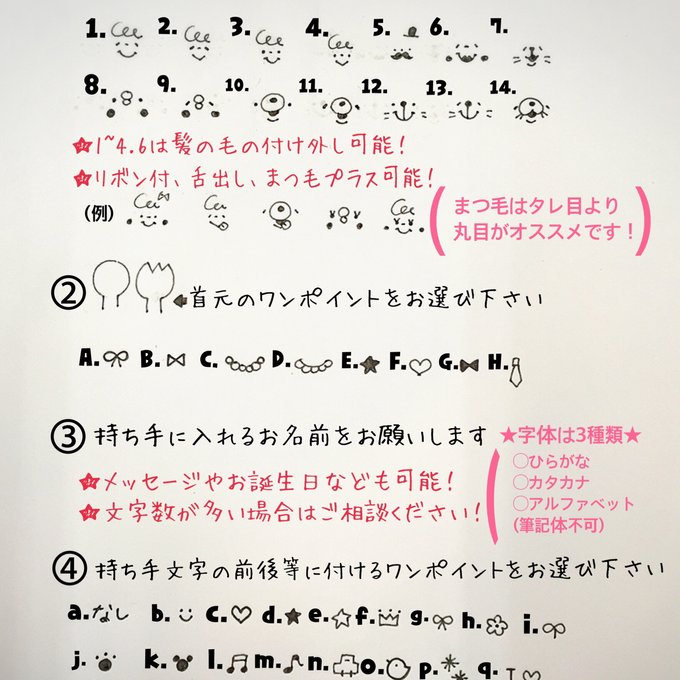 1. 2. 3. 4. 5. 6. 7.
8. 9. 10. 11. 12. 13. 14.
★1~4.6は髪の毛の付け外し可能!
★リボン付、舌出し、まつもプラス可能!
(例)
(まつ毛はタレ目より
丸目がオススメです!)
②首元のワンポイントをお選び下さい
A. B. C. D. E. F. G. H.
③持ち手に入れるお名前をお願いします
★メッセージやお誕生日なども可能!
★文字数が多い場合はご相談ください!
★字体は3種類★
○ひらがな
○カタカナ
○アルファベット
(筆記体不可)
④持ち手文字の前後等に付けるワンポイントをお選び下さい
a.なし b. c. d. e. f. g. h. i.
j. k. l. m. n. o. p. q.